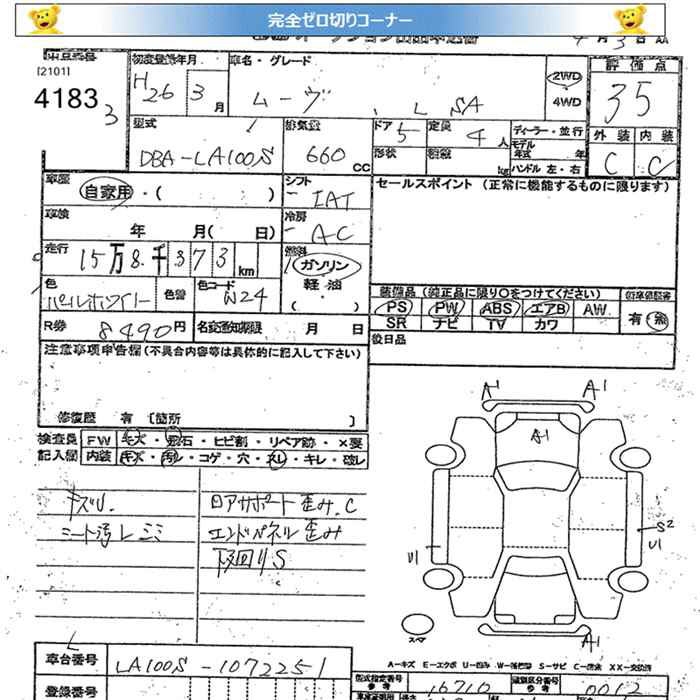 完全ゼロ切りコーナー
[2101]
41833
初度登録年月
H26 3月
車名・グレード
ムーヴ L SA
2WD
4WD
評価点
35
外装 内装
C C
型式
DBA-LA100S
排気量
660 CC
ドア 5
形状
定員 4人
積載 kg
ディーラー・並行
モデル年式 年
ハンドル 左・右
車歴
自家用・( )
シフト
IAT
セールスポイント (正常に機能するものに限ります)
車検
年 月( 日)
冷房
AC
走行
15万8千373km
燃料
ガソリン
軽油
( )
色
パールホワイト
色替
色コード
W24
装備品 (純正品に限り○をつけてください)
PS PW ABS エアB AW
SR ナビ TV カワ
有・無
R券 8490円
名変通知期限 月 日
後日品
注意事項申告欄(不具合内容等は具体的に記入して下さい)
修復歴 有 [箇所 ]
検査員
記入欄
FW キズ・飛石・ヒビ割・リペア跡・×要
内装 キズ・汚レ・コゲ・穴・スレ・キレ・破レ
キズU.
シート汚レ シミ
ロアサポート歪み.C
エンドパネル歪み
下回りS
A1 A1
A1
S2
U1
U1
A1
スペア
A-キズ E-エクボ U-凹み W-補修跡 S-サビ C-腐食 XX-交換済
車台番号
LA100S-1072251
登録番号
型式指定番号
参考
16710
類別区分番号
参考
0012